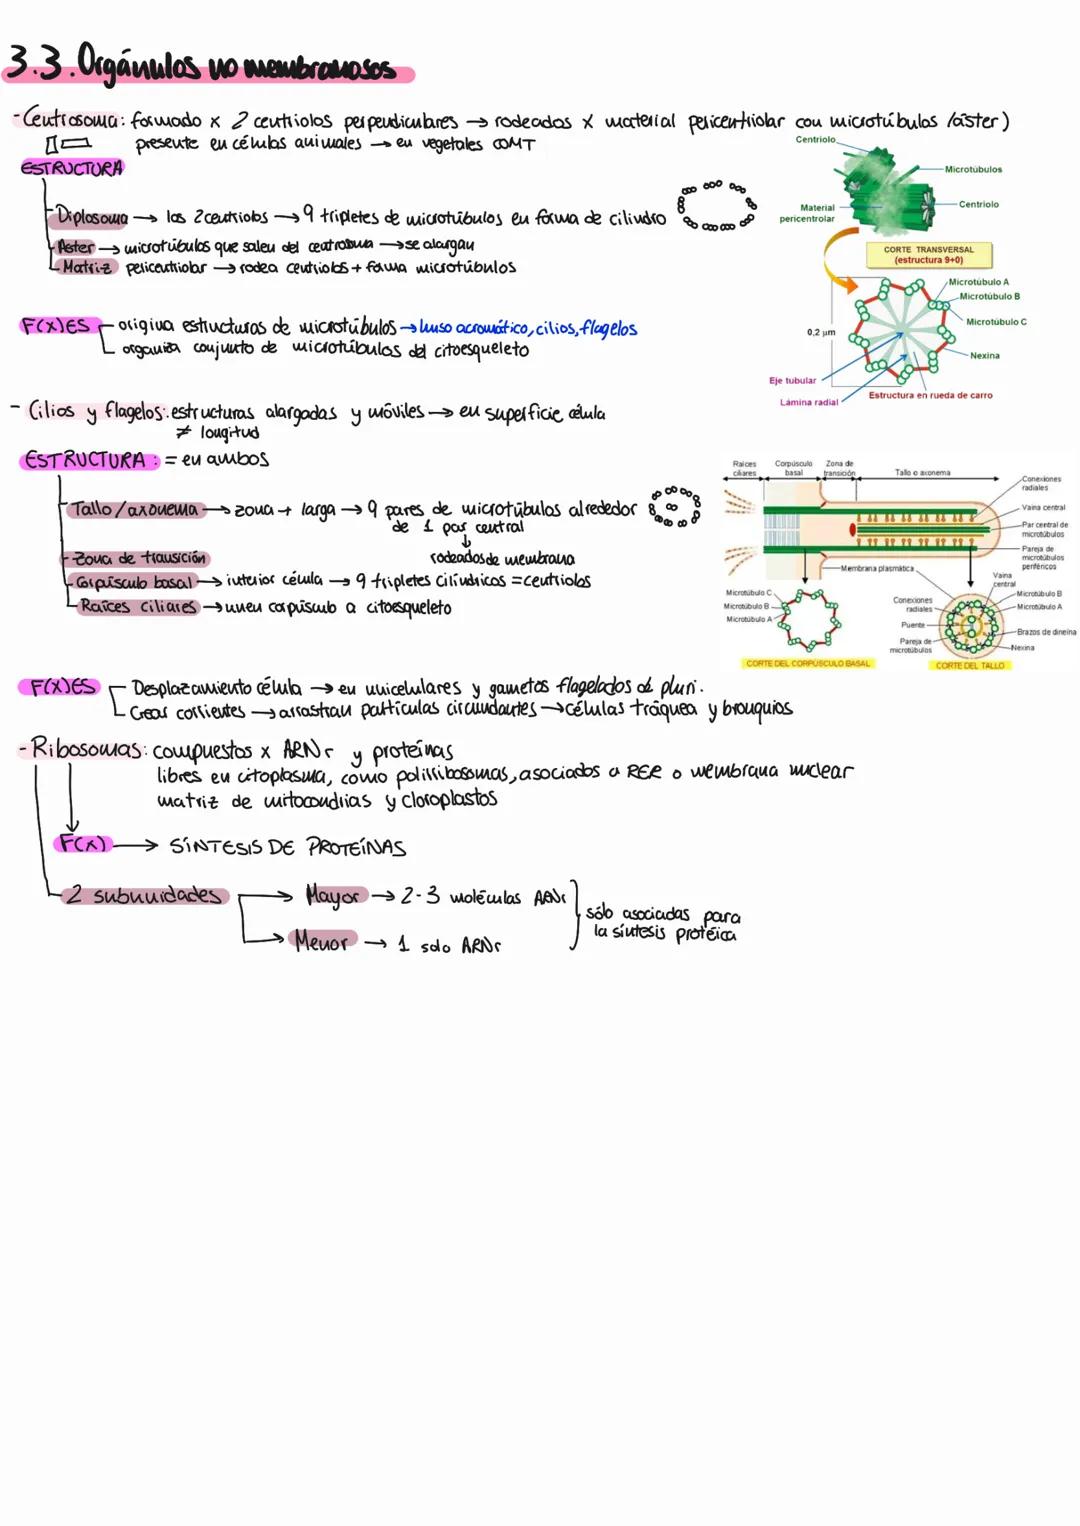 3.3. Orgánulos no membranosos
- Centrosoma: formado x 2 centriolos perpendiculares → rodeados x material pericentriolar con microtúbulos (áster)
presente en células animales → en vegetales COMT
ESTRUCTURA
Diplosoma → los 2 centriolos → 9 tripletes de microtúbulos en forma de cilindro
Aster → microtúbulos que salen del centrosoma → se alargan
Matriz pericentriolar → rodea centriolos + forma microtúbulos
Centriolo
Microtúbulos
Centriolo
Material
pericentrolar
CORTE TRANSVERSAL
(estructura 9+0)
Microtúbulo A
Microtúbulo B
Microtúbulo C
0,2 µm
Nexina
Eje tubular
Lámina radial
Estructura en rueda de carro
F(X)ES
origina estructuras de microtúbulos → huso acromático, cilios, flagelos
organiza conjunto de microtúbulos del citoesqueleto
- Cilios y flagelos: estructuras alargadas y móviles → en superficie célula
≠ longitud
ESTRUCTURA : = en ambos
Tallo / axonema → zona + larga → 9 pares de microtúbulos alrededor
de 1 par central
↓
rodeados de membrana
- Zona de transición
Corpúsculo basal → interior célula → 9 tripletes cilíndricos = centriolos
Raíces ciliares → unen corpúsculo a citoesqueleto
Raíces
ciliares
Corpúsculo
basal
Zona de
transición
Tallo o axonema
Conexiones
radiales
Vaina central
Par central de
microtúbulos
Pareja de
microtúbulos
periféricos
Membrana plasmática
Vaina
central
Microtúbulo C
Microtúbulo B
Microtúbulo A
Conexiones
radiales
Puente
Pareja de
microtúbulos
Microtúbulo B
Microtúbulo A
Brazos de dineína
Nexina
CORTE DEL CORPÚSCULO BASAL
CORTE DEL TALLO
F(X)ES
Desplazamiento célula → en unicelulares y gametos flagelados de pluri.
Crear corrientes → arrastran partículas circundantes → células tráquea y bronquios
- Ribosomas: compuestos x ARNr y proteínas
libres en citoplasma, como polirribosomas, asociados a RER o membrana nuclear
matriz de mitocondrias y cloroplastos
F(X) → SÍNTESIS DE PROTEÍNAS
2 subunidades
Mayor → 2-3 moléculas ARNr
Menor → 1 solo ARNr
sólo asociadas para
la síntesis proteica